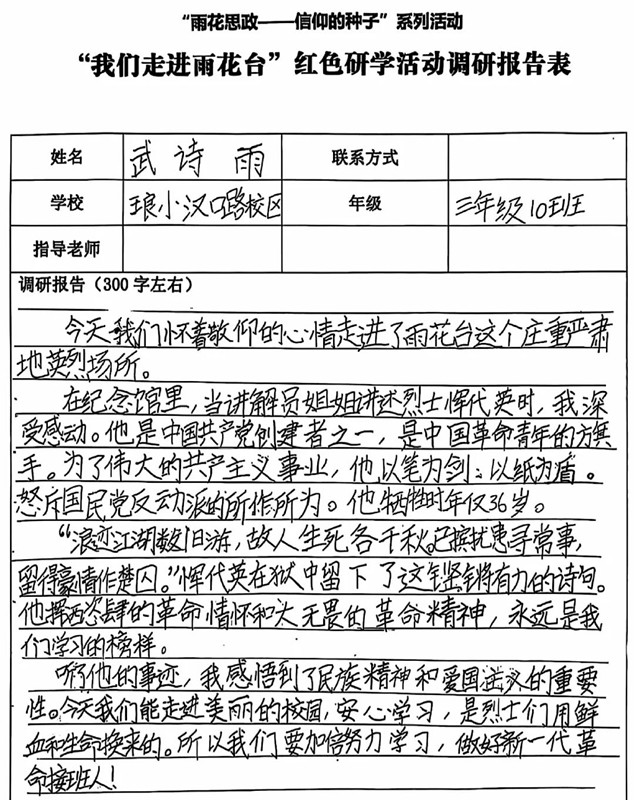 “雨花思政——信仰的种子”系列活动
“我们走进雨花台”红色研学活动调研报告表
姓名 武诗雨 联系方式
学校 琅小汉口路校区 年级 三年级10班
指导老师
调研报告（300字左右）
今天我们怀着敬仰的心情走进了雨花台这个庄重严肃
地英烈场所。
在纪念馆里，当讲解员姐姐讲述烈士恽代英时，我深
受感动。他是中国共产党创建者之一，是中国革命青年的方旗
手。为了伟大的共产主义事业，他以笔为剑；以纸为盾。
怒斥国民党反动派的所作所为。他牺牲时年仅36岁。
“浪迹江湖数旧游，故人生死各千秋。已摈扰患寻常事，
留得豪情作楚囚。”恽代英在狱中留下了这铿锵有力的诗句。
他挥洒恣肆的革命情怀和大无畏的革命精神，永远是我
们学习的榜样。
听了他的事迹，我感悟到了民族精神和爱国的重要
性。今天我们能走进美丽的校园，安心学习，是烈士们用鲜
血和生命换来的。所以我们要加倍努力学习，做好新一代革
命接班人！